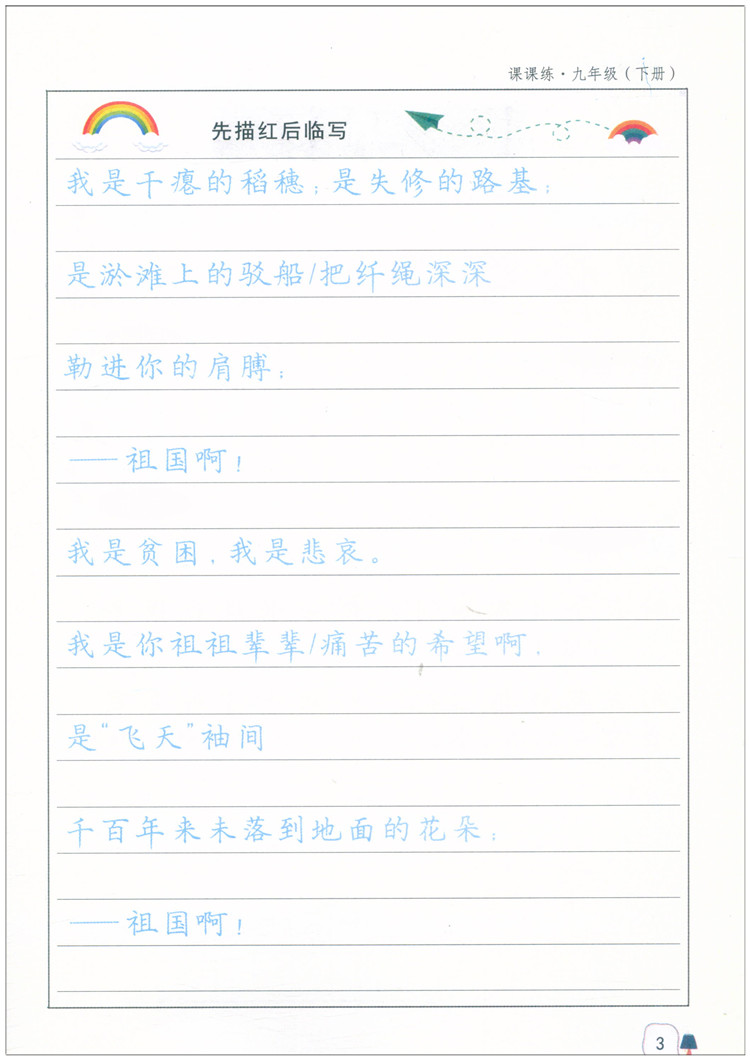 课课练·九年级（下册）
先描红后临写
我是干瘪的稻穗；是失修的路基；
是淤滩上的驳船/把纤绳深深
勒进你的肩膊；
——祖国啊！
我是贫困，我是悲哀。
我是你祖祖辈辈/痛苦的希望啊，
是“飞天”袖间
千百年来未落到地面的花朵；
——祖国啊！
3